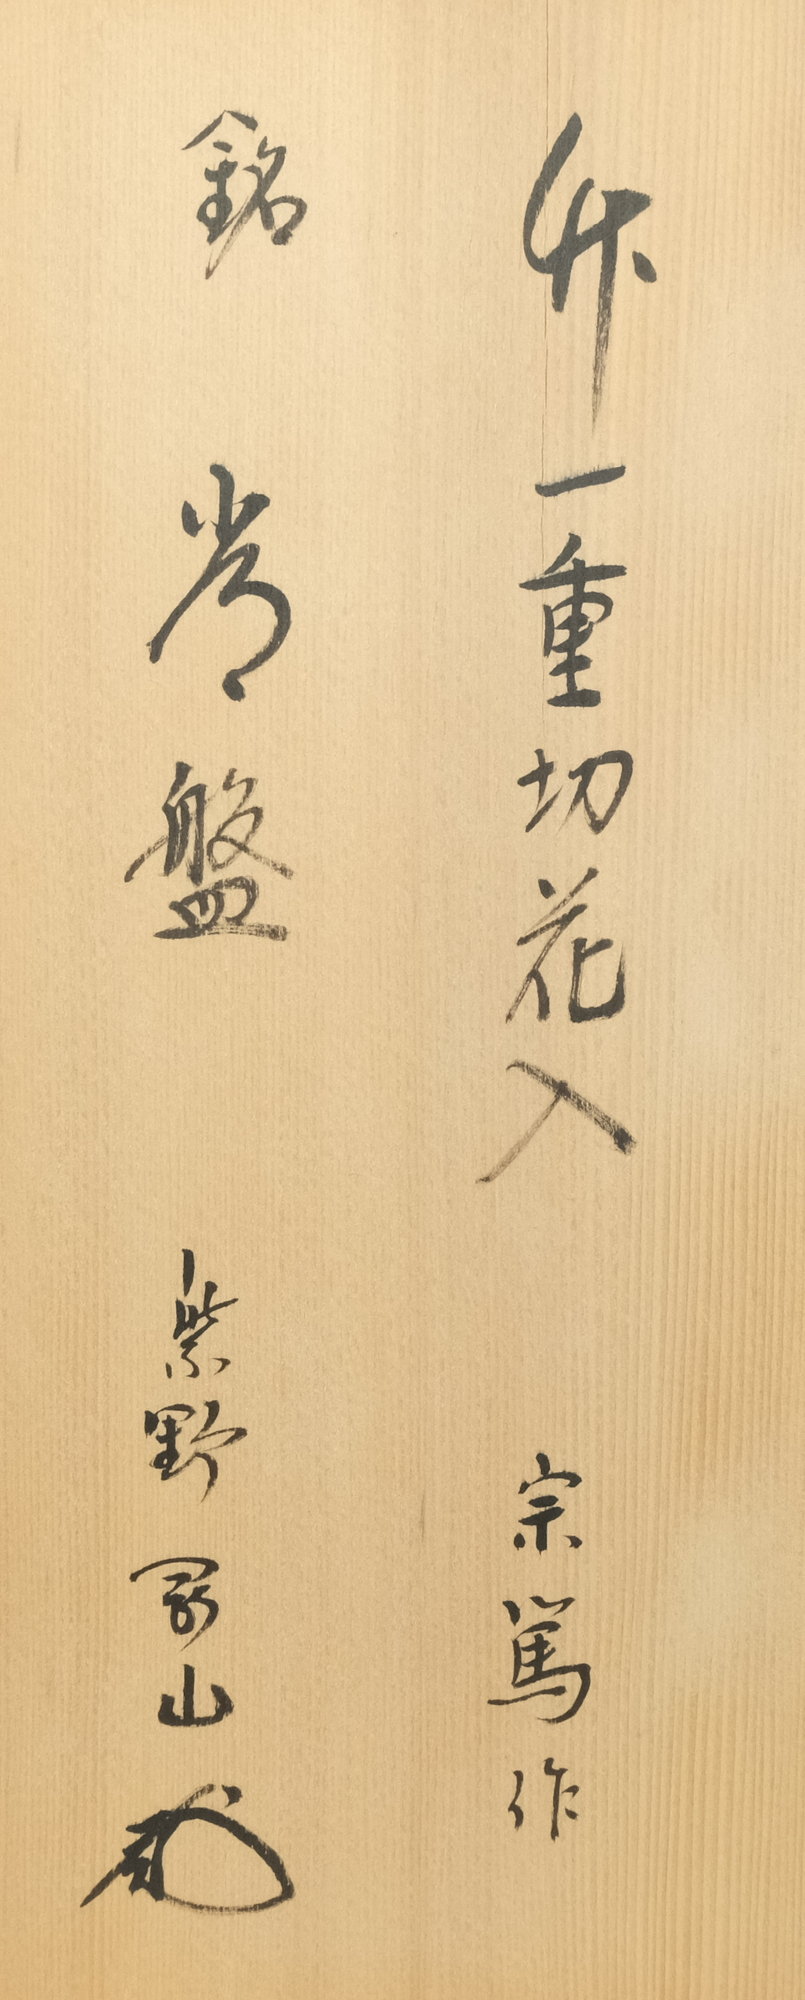 竹一重切花入 宗篤作
銘 常盤 紫野 山